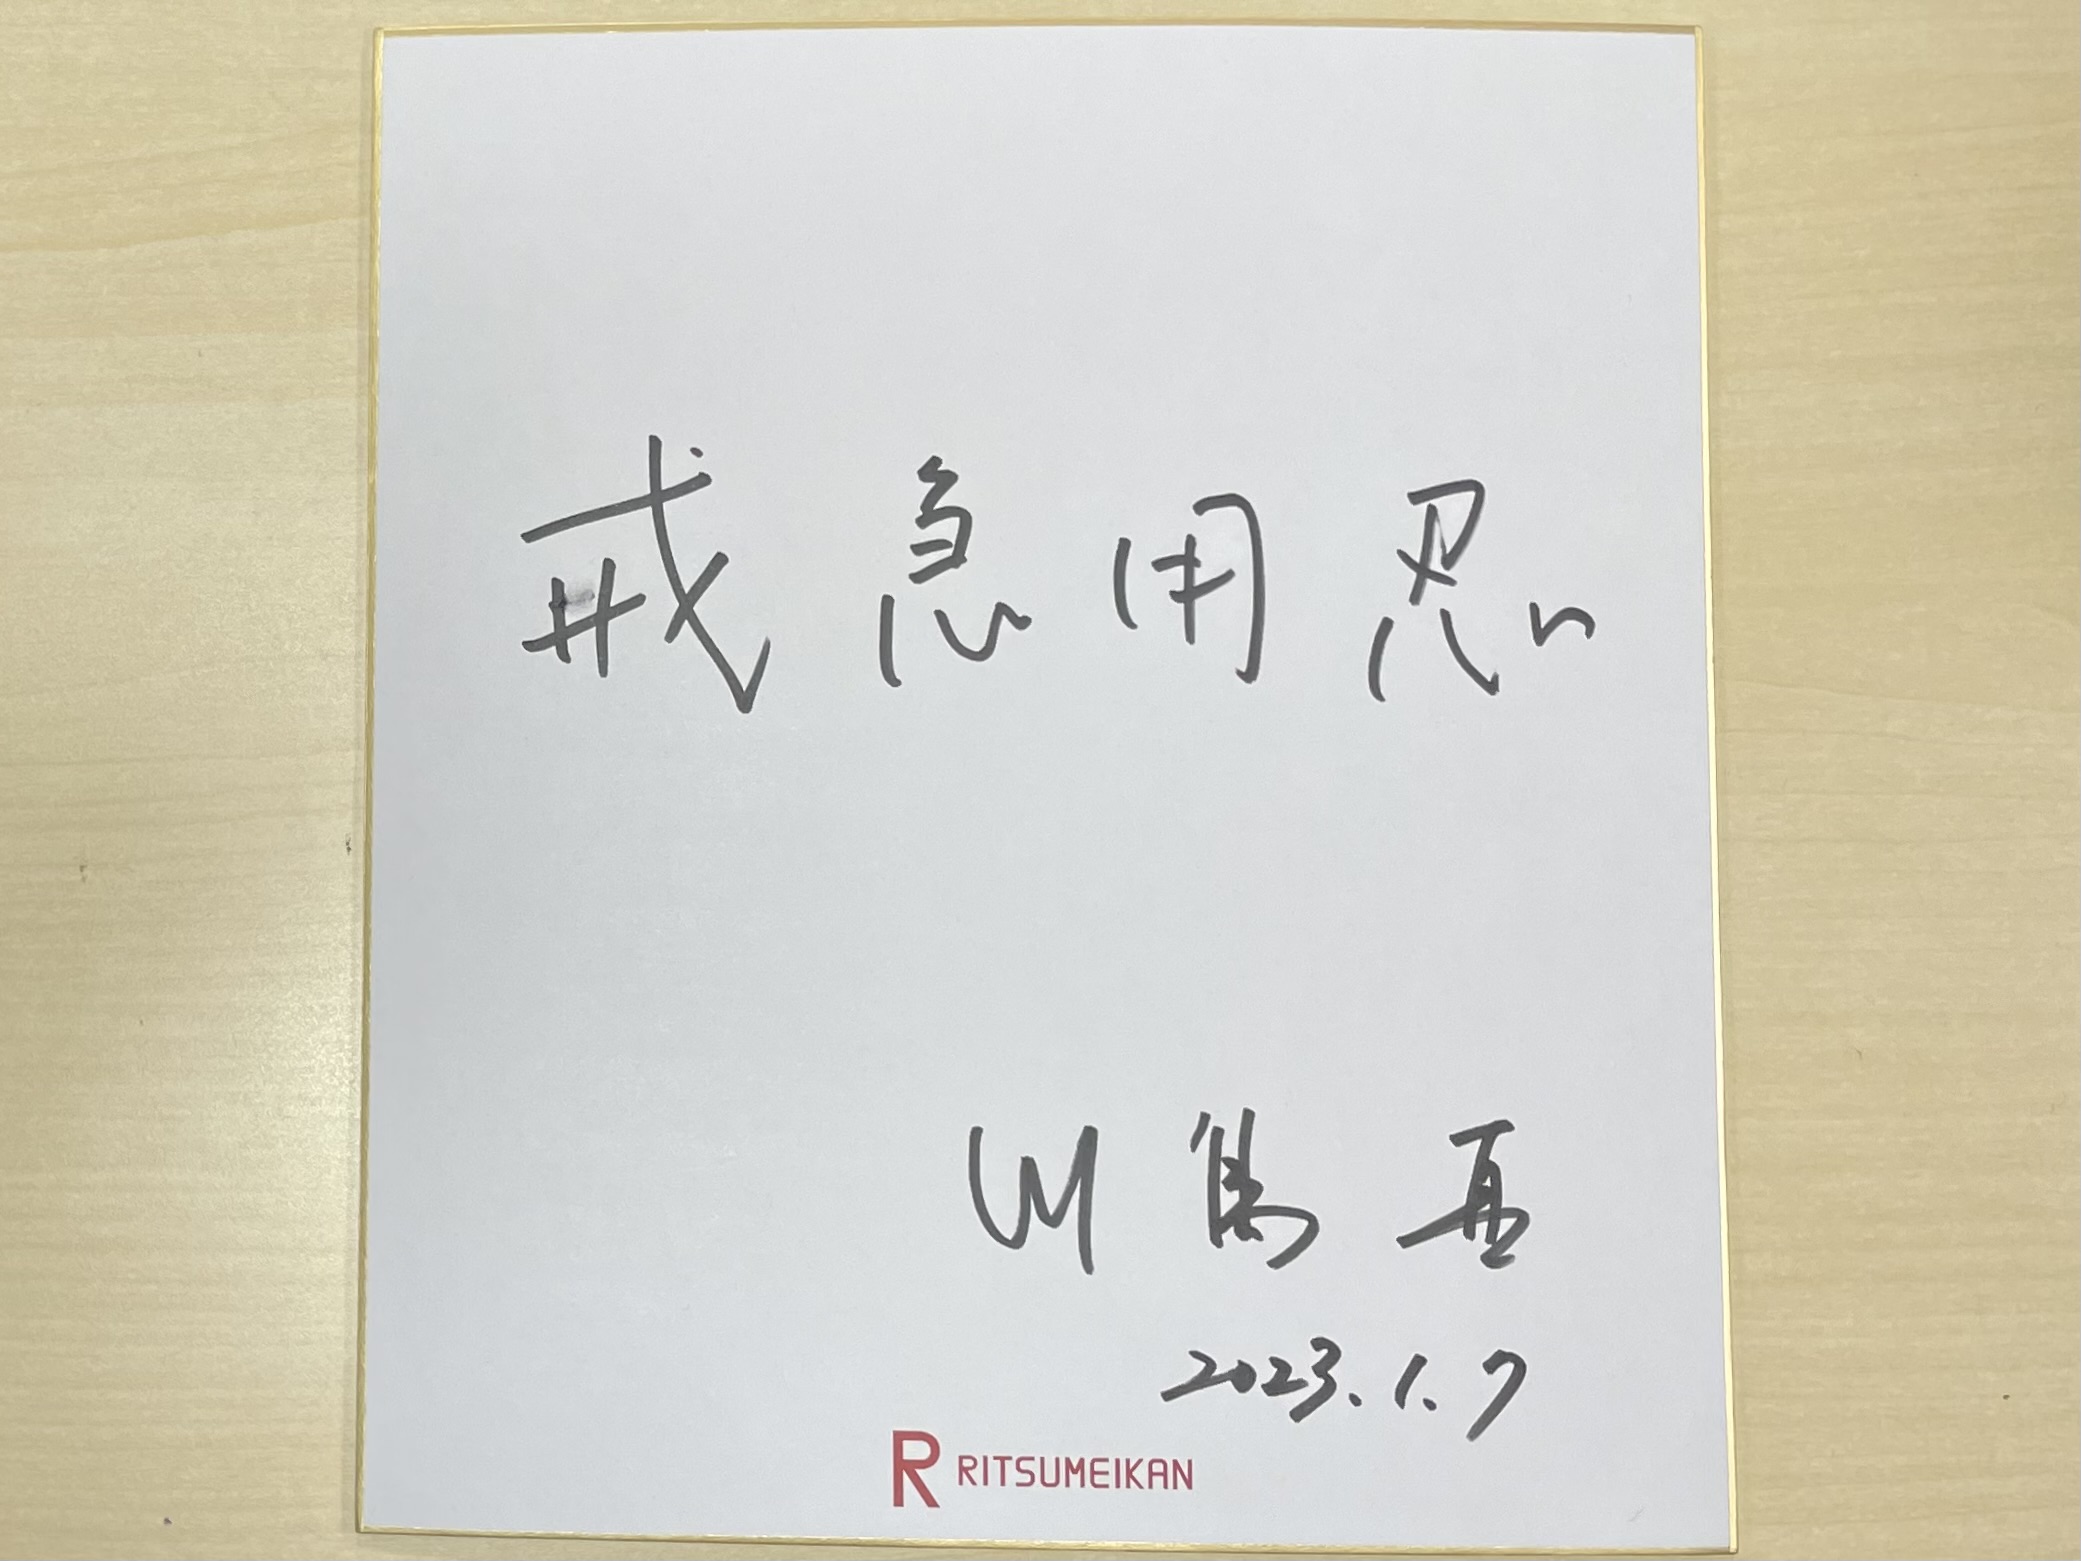 戒急用忍
川島真
2023.1.7
R RITSUMEIKAN